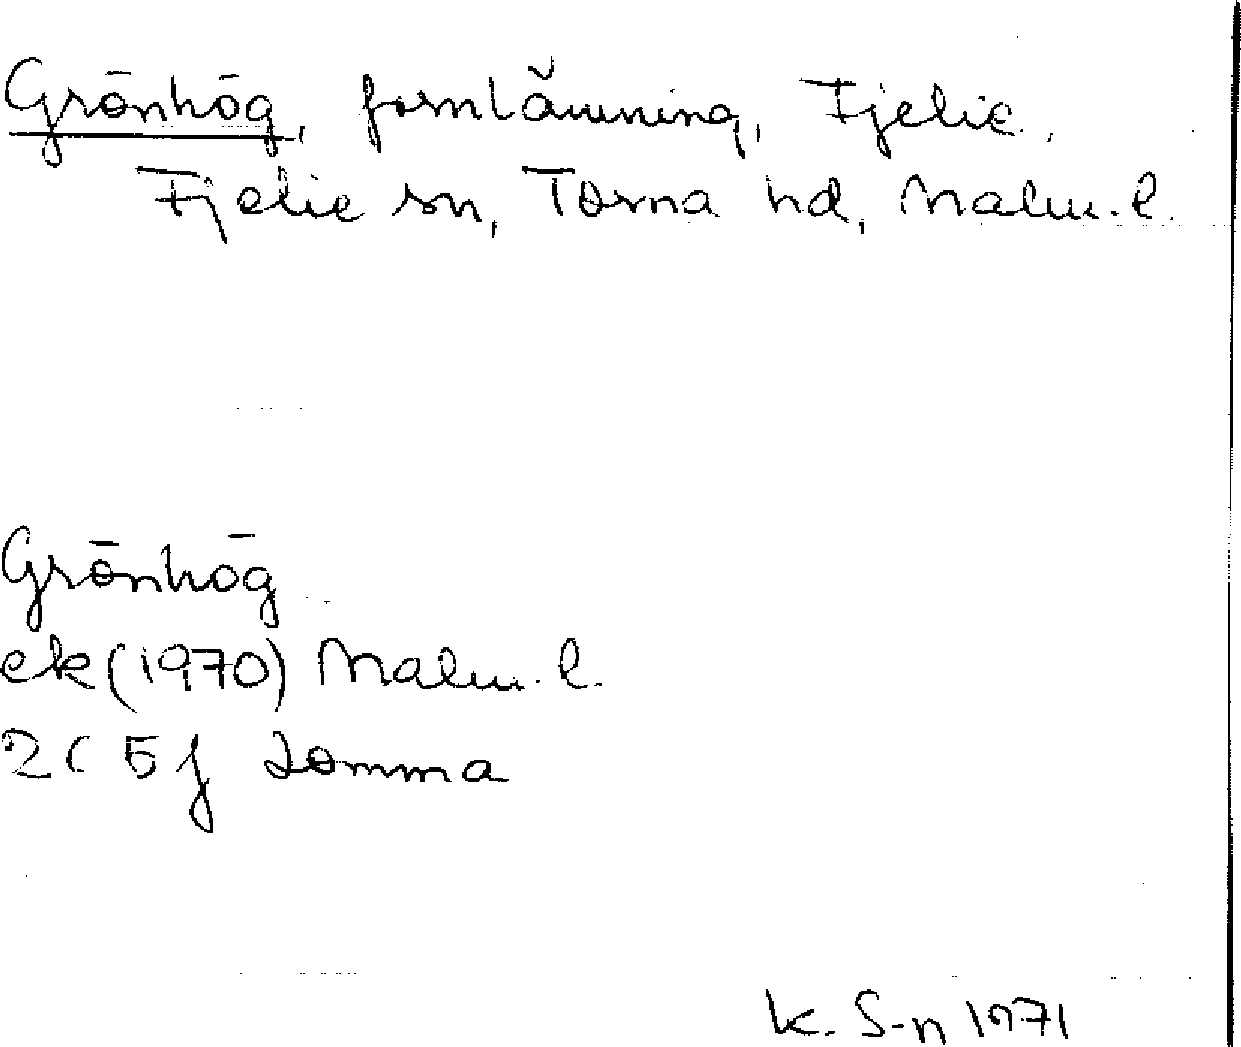 Grönhög, fornlämning, Fjelie,
Fjelie sn, Torna hd, Malm. l.
Grönhög
ek (1970) Malm. l.
2C 5f Lomma
K. S-n 1971